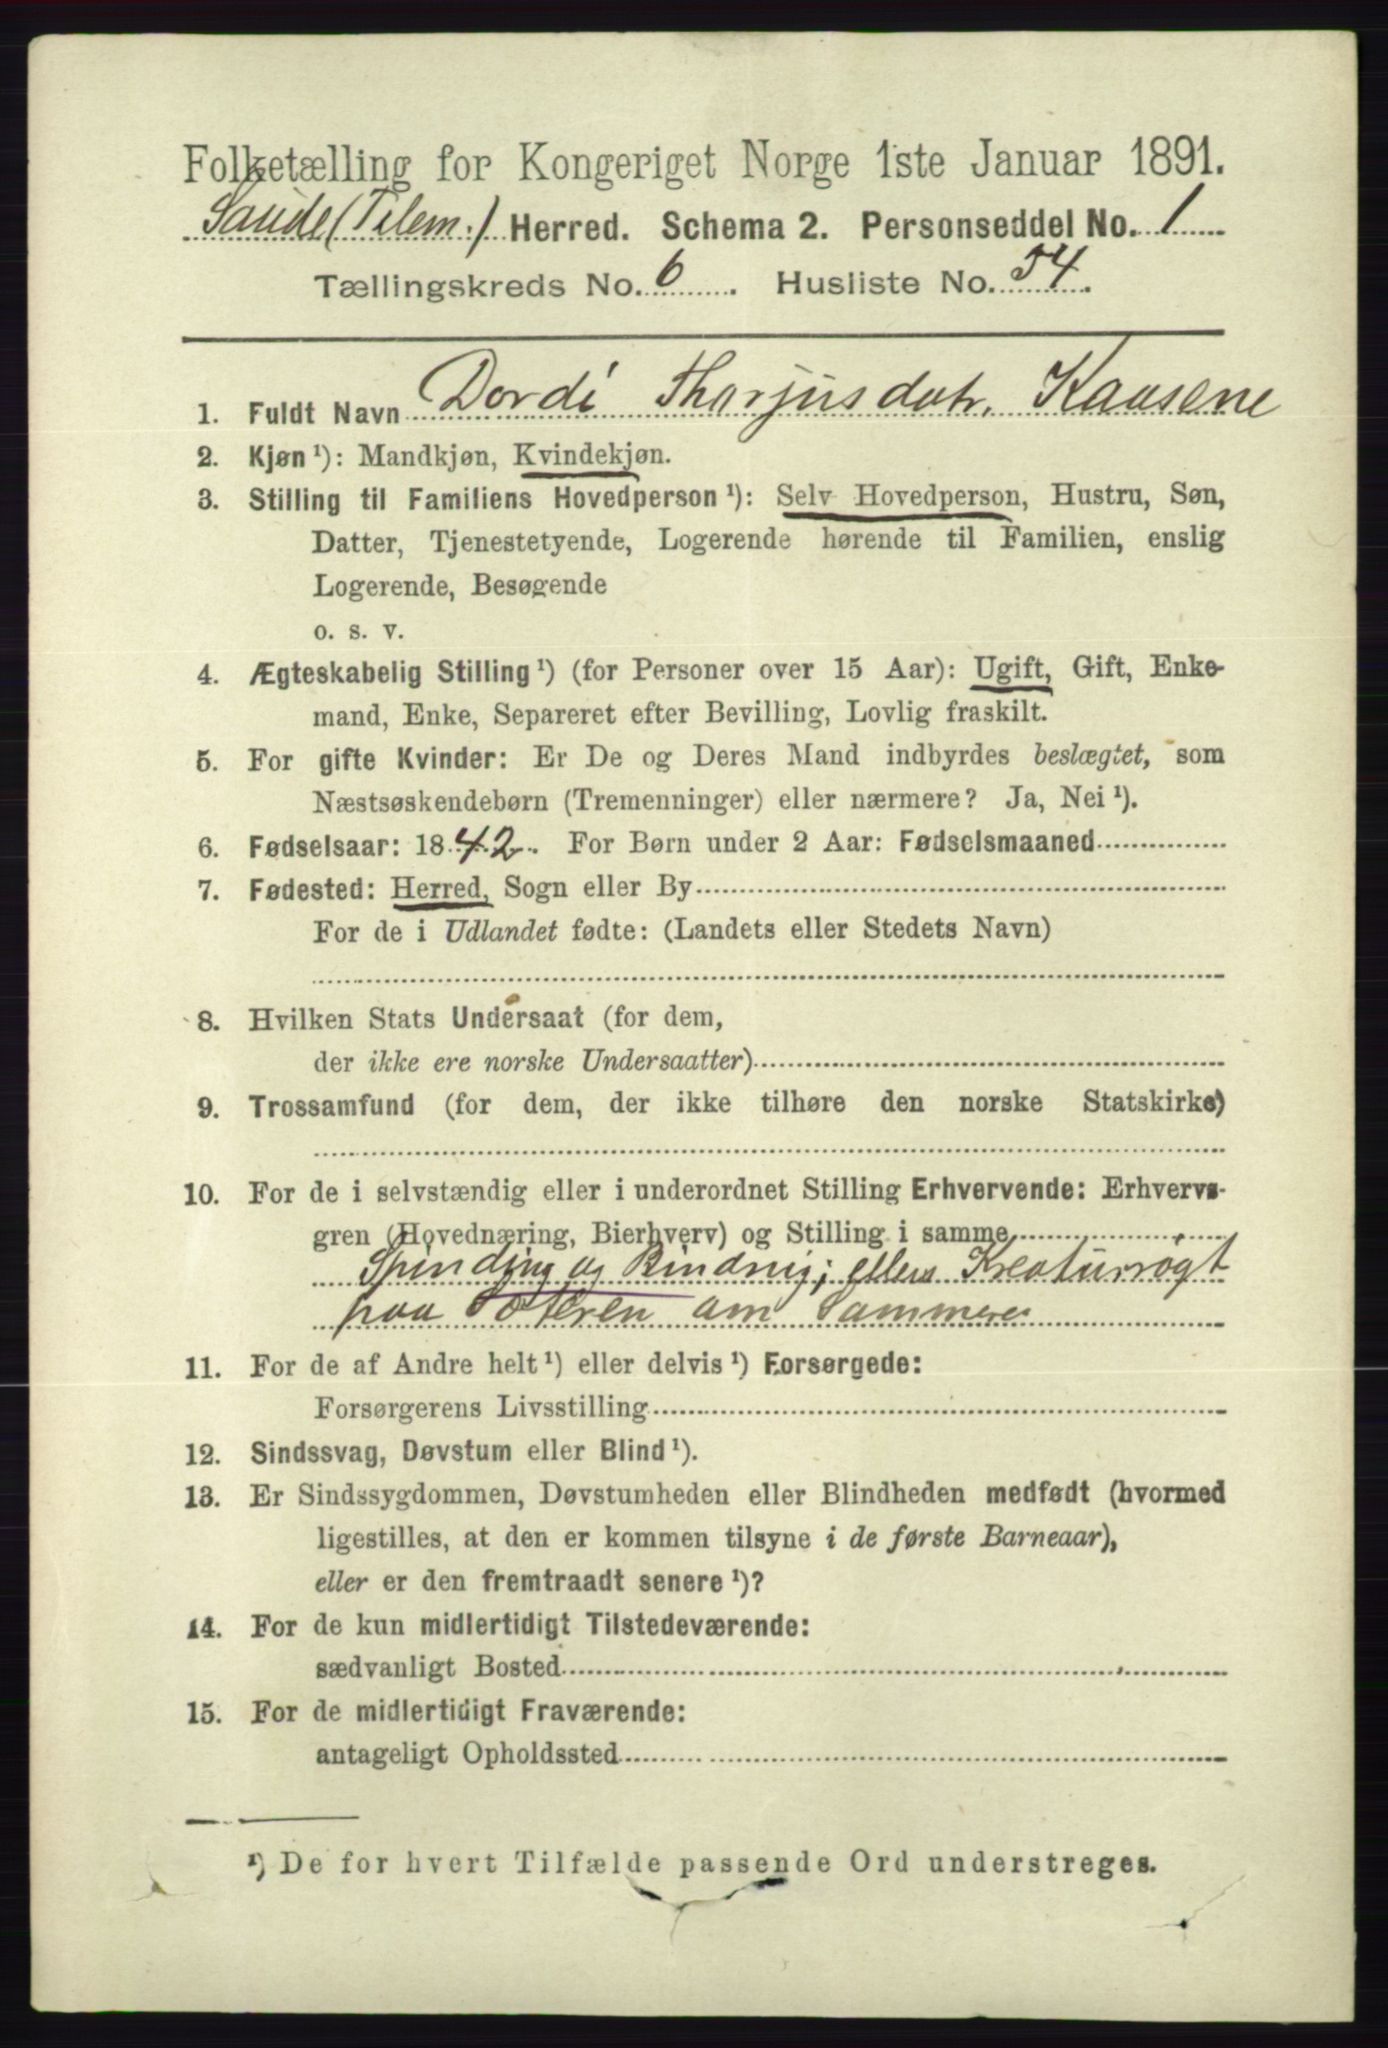 Folketælling for Kongeriget Norge 1ste Januar 1891.
Saude (Telem.) Herred. Schema 2. Personseddel No. 1
Tællingskreds No. 6. Husliste No. 54.
1. Fuldt Navn Dordi Thorjusdatr. Kaasene
2. Kjøn ¹): Mandkjøn, Kvindekjøn.
3. Stilling til Familiens Hovedperson ¹): Selv Hovedperson, Hustru, Søn,
Datter, Tjenestetyende, Logerende hørende til Familien, enslig
Logerende, Besøgende
o. s. v.
4. Ægteskabelig Stilling ¹) (for Personer over 15 Aar): Ugift, Gift, Enke-
mand, Enke, Separeret efter Bevilling, Lovlig fraskilt.
5. For gifte Kvinder: Er De og Deres Mand indbyrdes beslægtet, som
Næstsøskendebørn (Tremenninger) eller nærmere? Ja, Nei ¹).
6. Fødselsaar: 1842. For Børn under 2 Aar: Fødselsmaaned
7. Fødested: Herred, Sogn eller By
For de i Udlandet fødte: (Landets eller Stedets Navn)
8. Hvilken Stats Undersaat (for dem,
der ikke ere norske Undersaatter)
9. Trossamfund (for dem, der ikke tilhøre den norske Statskirke)
10. For de i selvstændig eller i underordnet Stilling Erhvervende: Erhvervs-
gren (Hovednæring, Bierhverv) og Stilling i samme
Spinding og Binding; ellers Kreaturrøgt
paa Sæteren om Sommeren
11. For de af Andre helt ¹) eller delvis ¹) Forsørgede:
Forsørgerens Livsstilling
12. Sindssvag, Døvstum eller Blind ¹).
13. Er Sindssygdommen, Døvstumheden eller Blindheden medfødt (hvormed
ligestilles, at den er kommen tilsyne i de første Barneaar),
eller er den fremtraadt senere ¹)?
14. For de kun midlertidigt Tilstedeværende:
sædvanligt Bosted
15. For de midlertidigt Fraværende:
antageligt Opholdssted
¹) De for hvert Tilfælde passende Ord understreges.